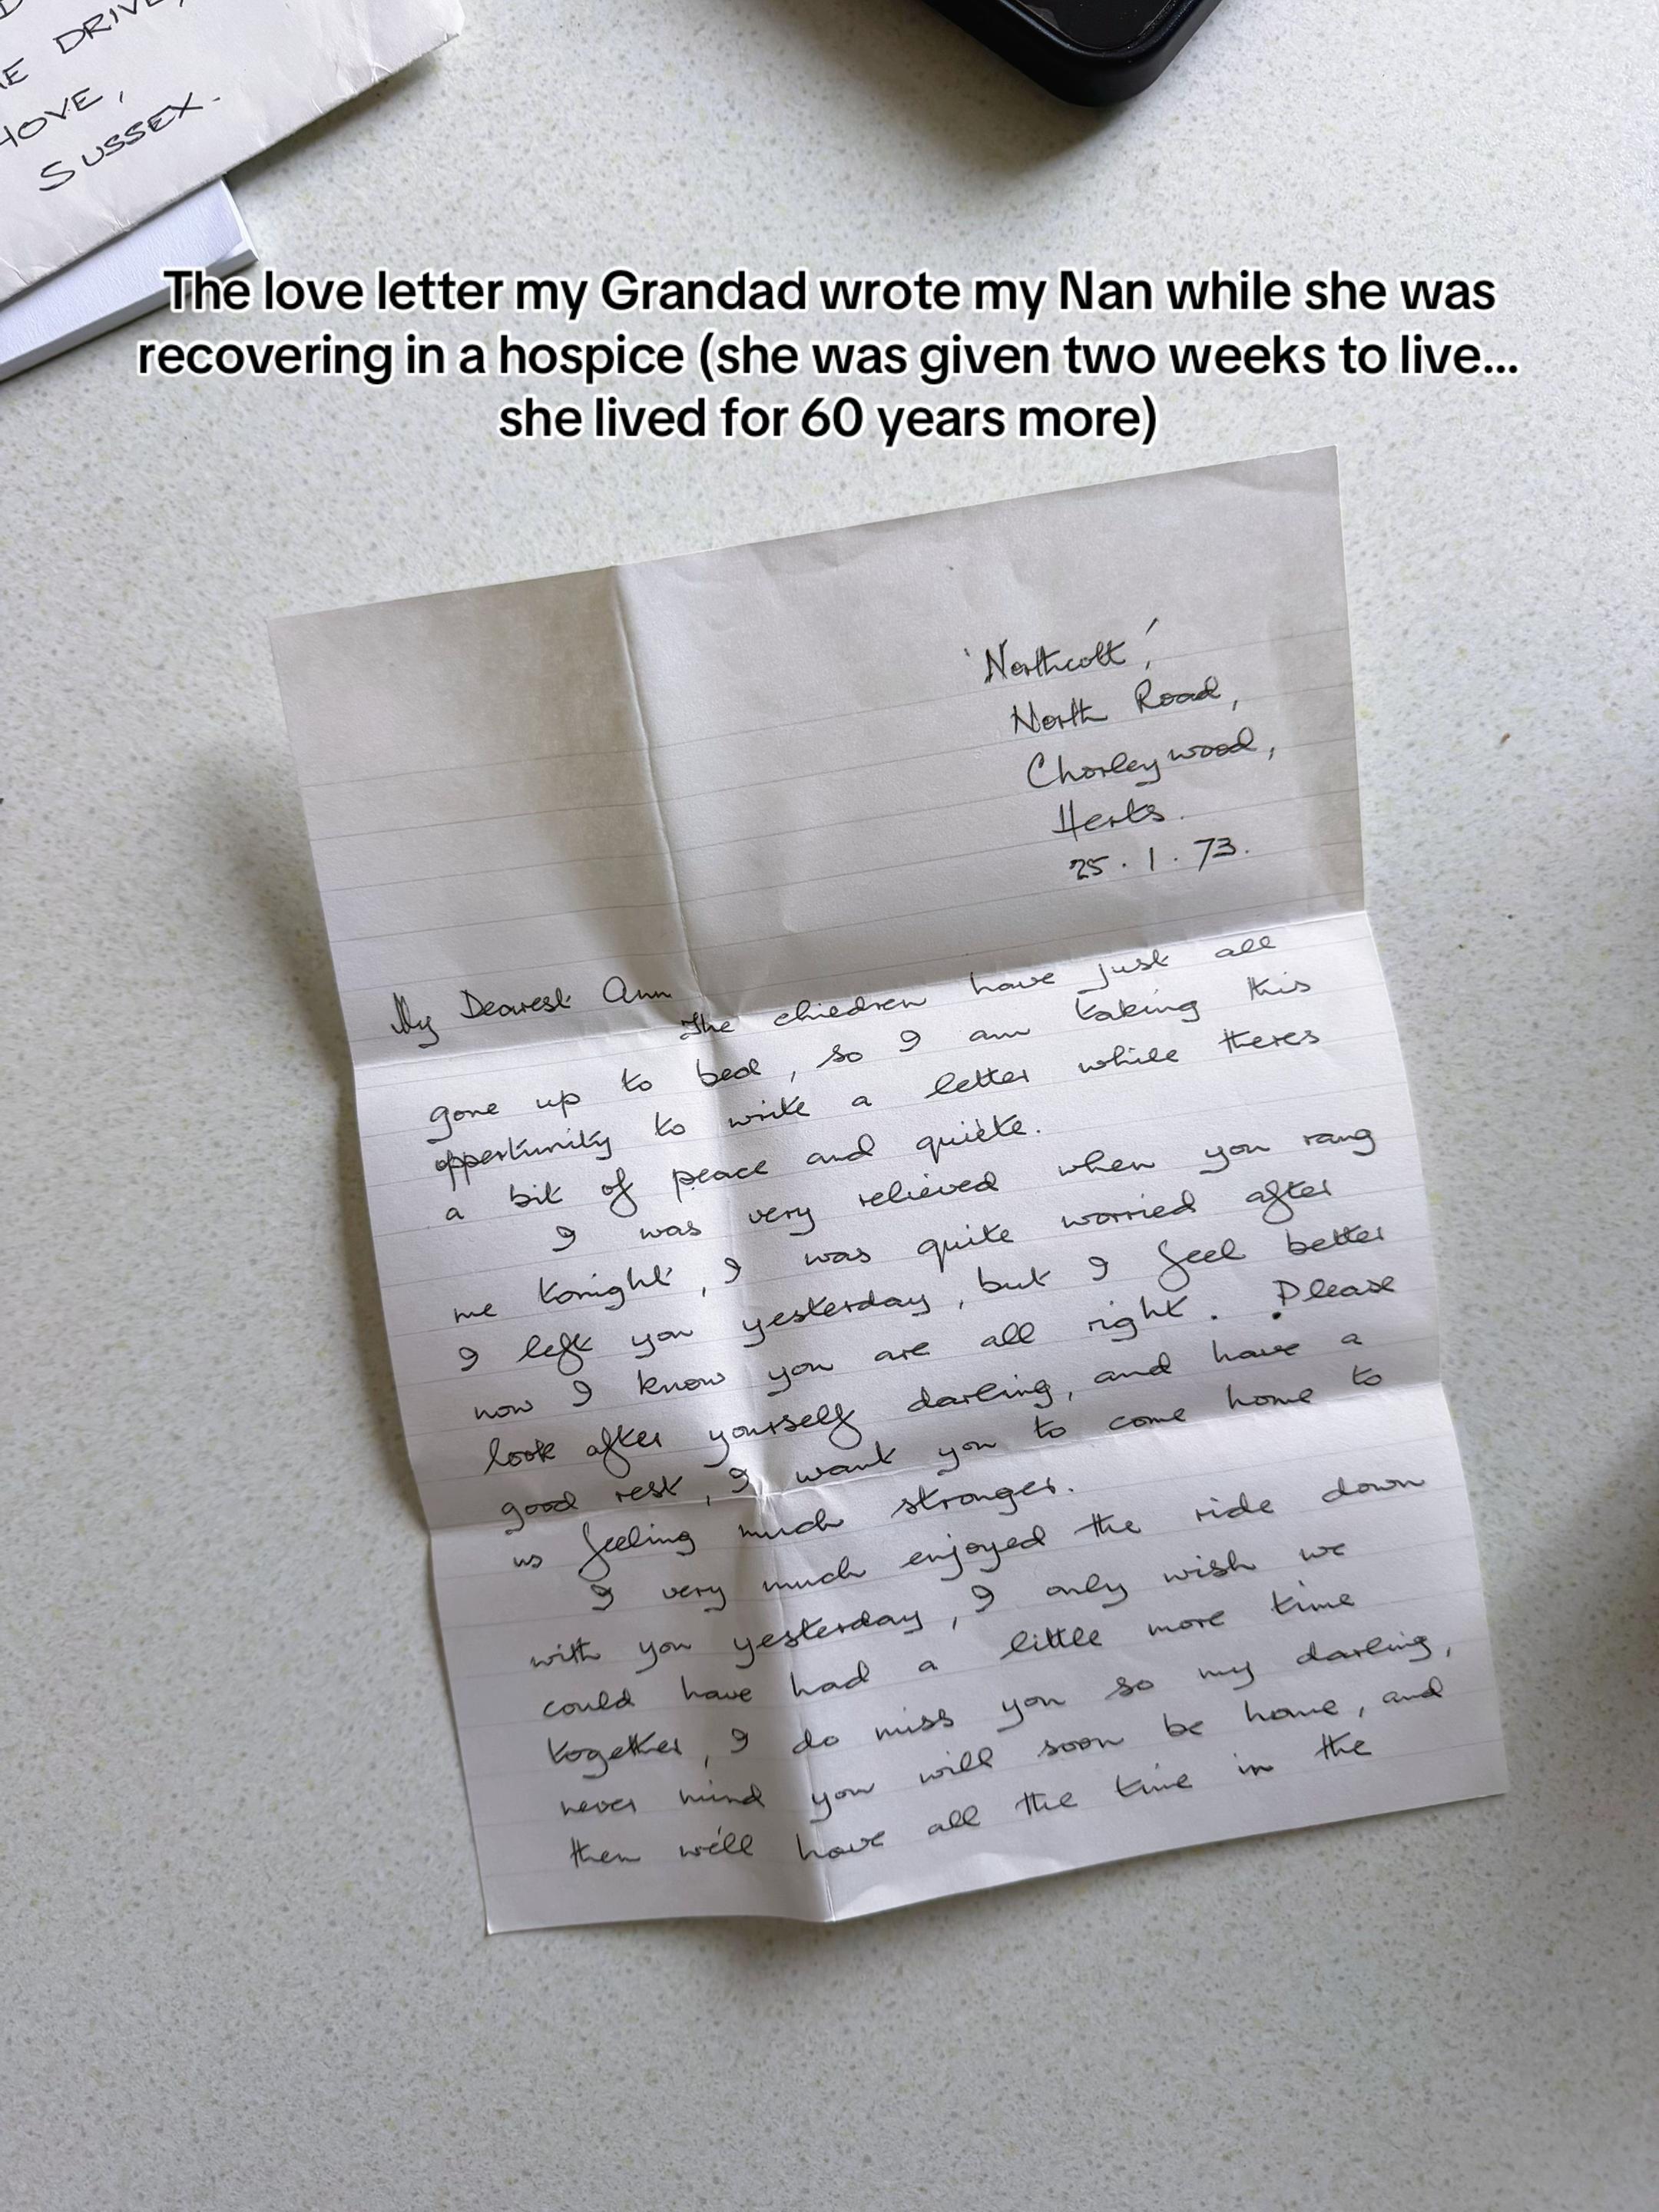 DRIVE,
HOVE,
SUSSEX.
The love letter my Grandad wrote my Nan while she was
recovering in a hospice (she was given two weeks to live...
she lived for 60 years more)
'Northcott',
North Road,
Chorleywood,
Herts.
25.1.73.
My Dearest Ann
The children have just all
gone up to bed, so I am taking this
opportunity to write a letter while theres
a bit of peace and quiete.
I was very relieved when you rang
me tonight, I was quite worried after
I left you yesterday, but I feel better
now I know you are all right. Please
look after yourself darling, and have a
good rest, I want you to come home to
us feeling much stronger.
I very much enjoyed the ride down
with you yesterday, I only wish we
could have had a little more time
together, I do miss you so my darling,
never mind you will soon be home, and
then we'll have all the time in the